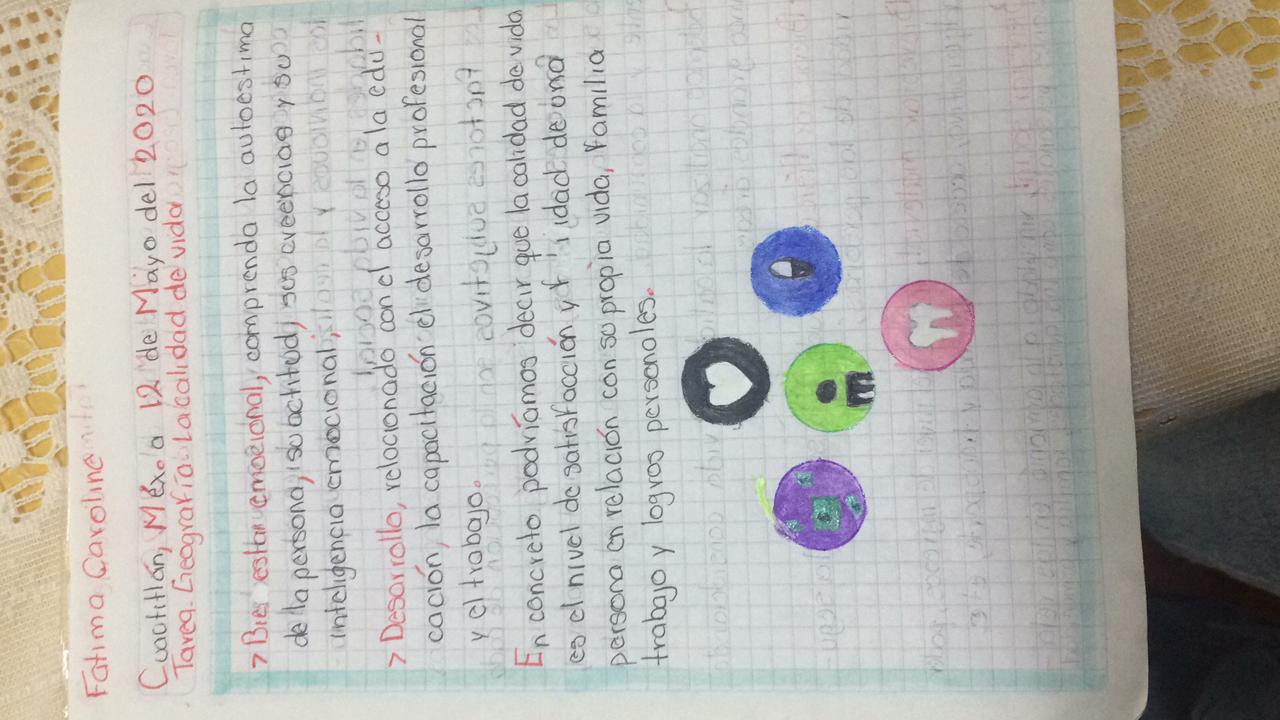 Fatima Caroline
Cuactitlán, Méx. a 12 de Mayo del 2020
Tarea. Geografía: La calidad de vida
> Bien estar emocional, comprenda la autoestima
de la persona, su actitud, sus creencias y su
inteligencia emocional;
> Desarrollo, relacionado con el acceso a la edu-
cación, la capacitación el desarrollo profesional
y el trabajo.
En concreto podríamos decir que la calidad de vida
es el nivel de satisfacción y de una
persona en relación con su propia vida, Familia
trabajo y logros personales.